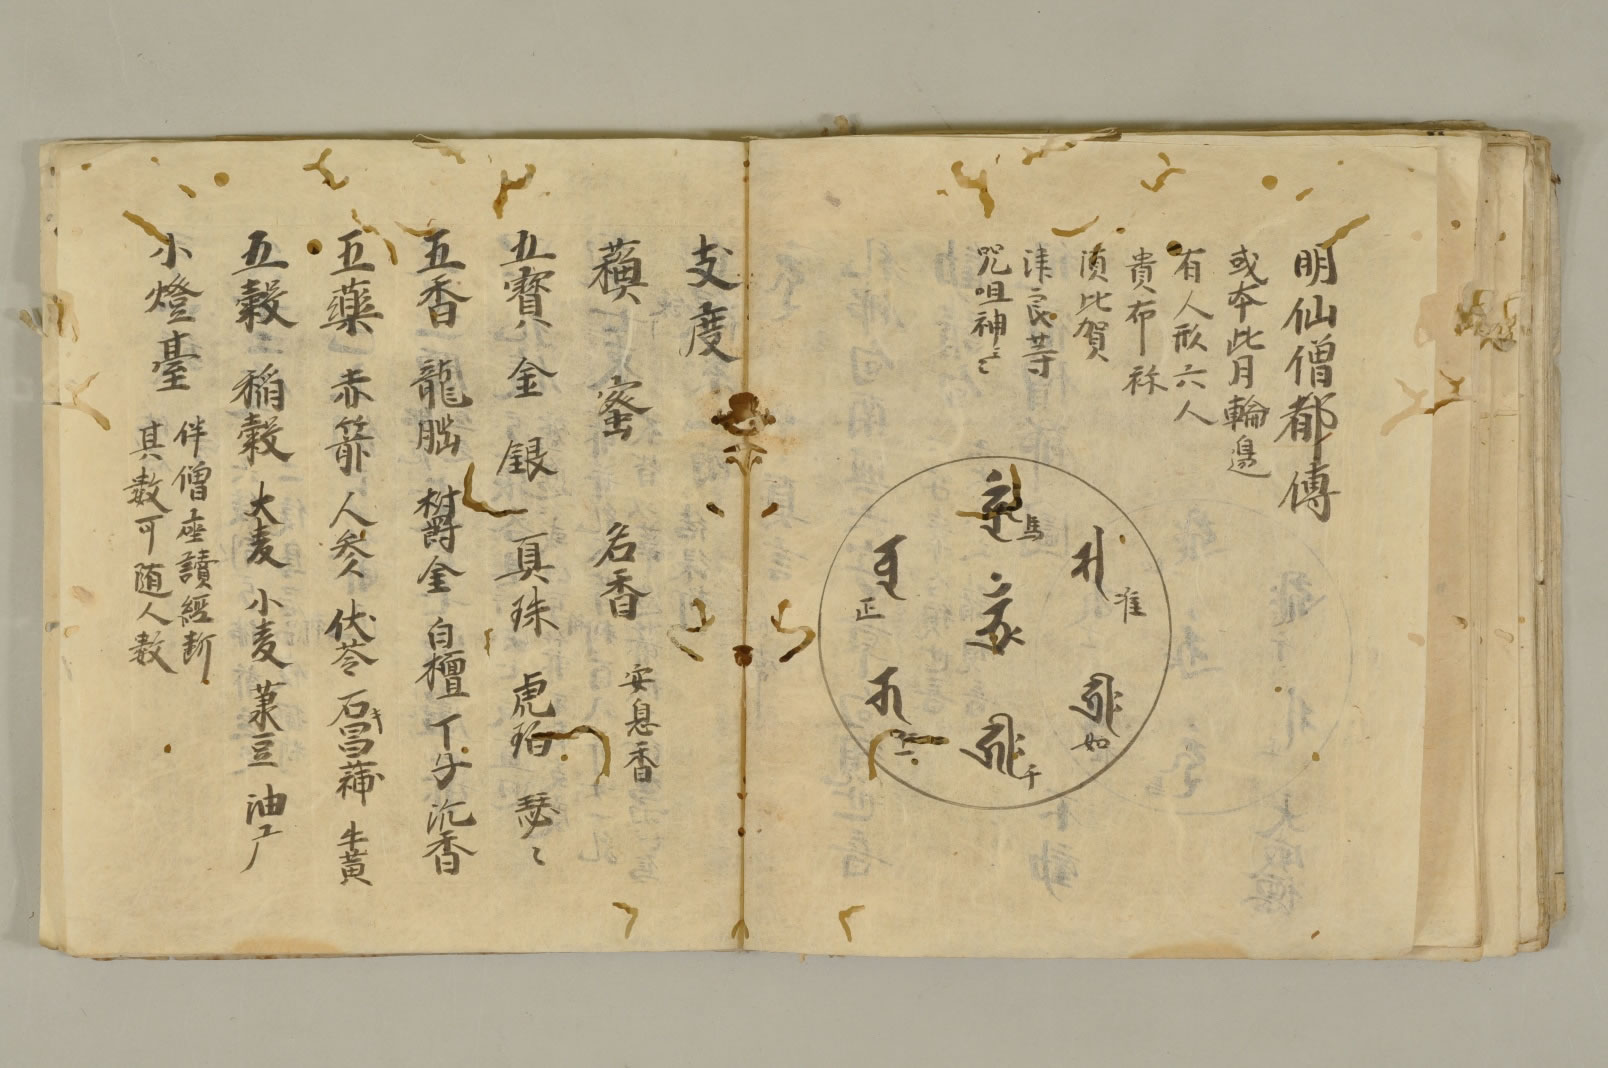 明仙僧都傳
或本此月輪邊
有人形六人
貴布祢
須比賀
津良等
咒咀神〻
馬
准
正
如
千
支度
蘓 蜜 名香 安息香
五寳 金 銀 真珠 虎珀 瑟〻
五香 龍𦛁 欝金 白檀 丁子 沉香
五藥 赤箭 人参 伏苓 石昌蒲 牛黄
五穀 稲穀 大麦 小麦 菉豆 油
小燈臺 伴僧座讀經𪗱
其數可随人數